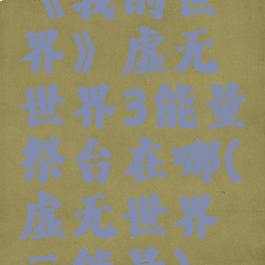 《我的世
界》虚无
世界3能量
祭台在哪(
虚无世界
三能量)